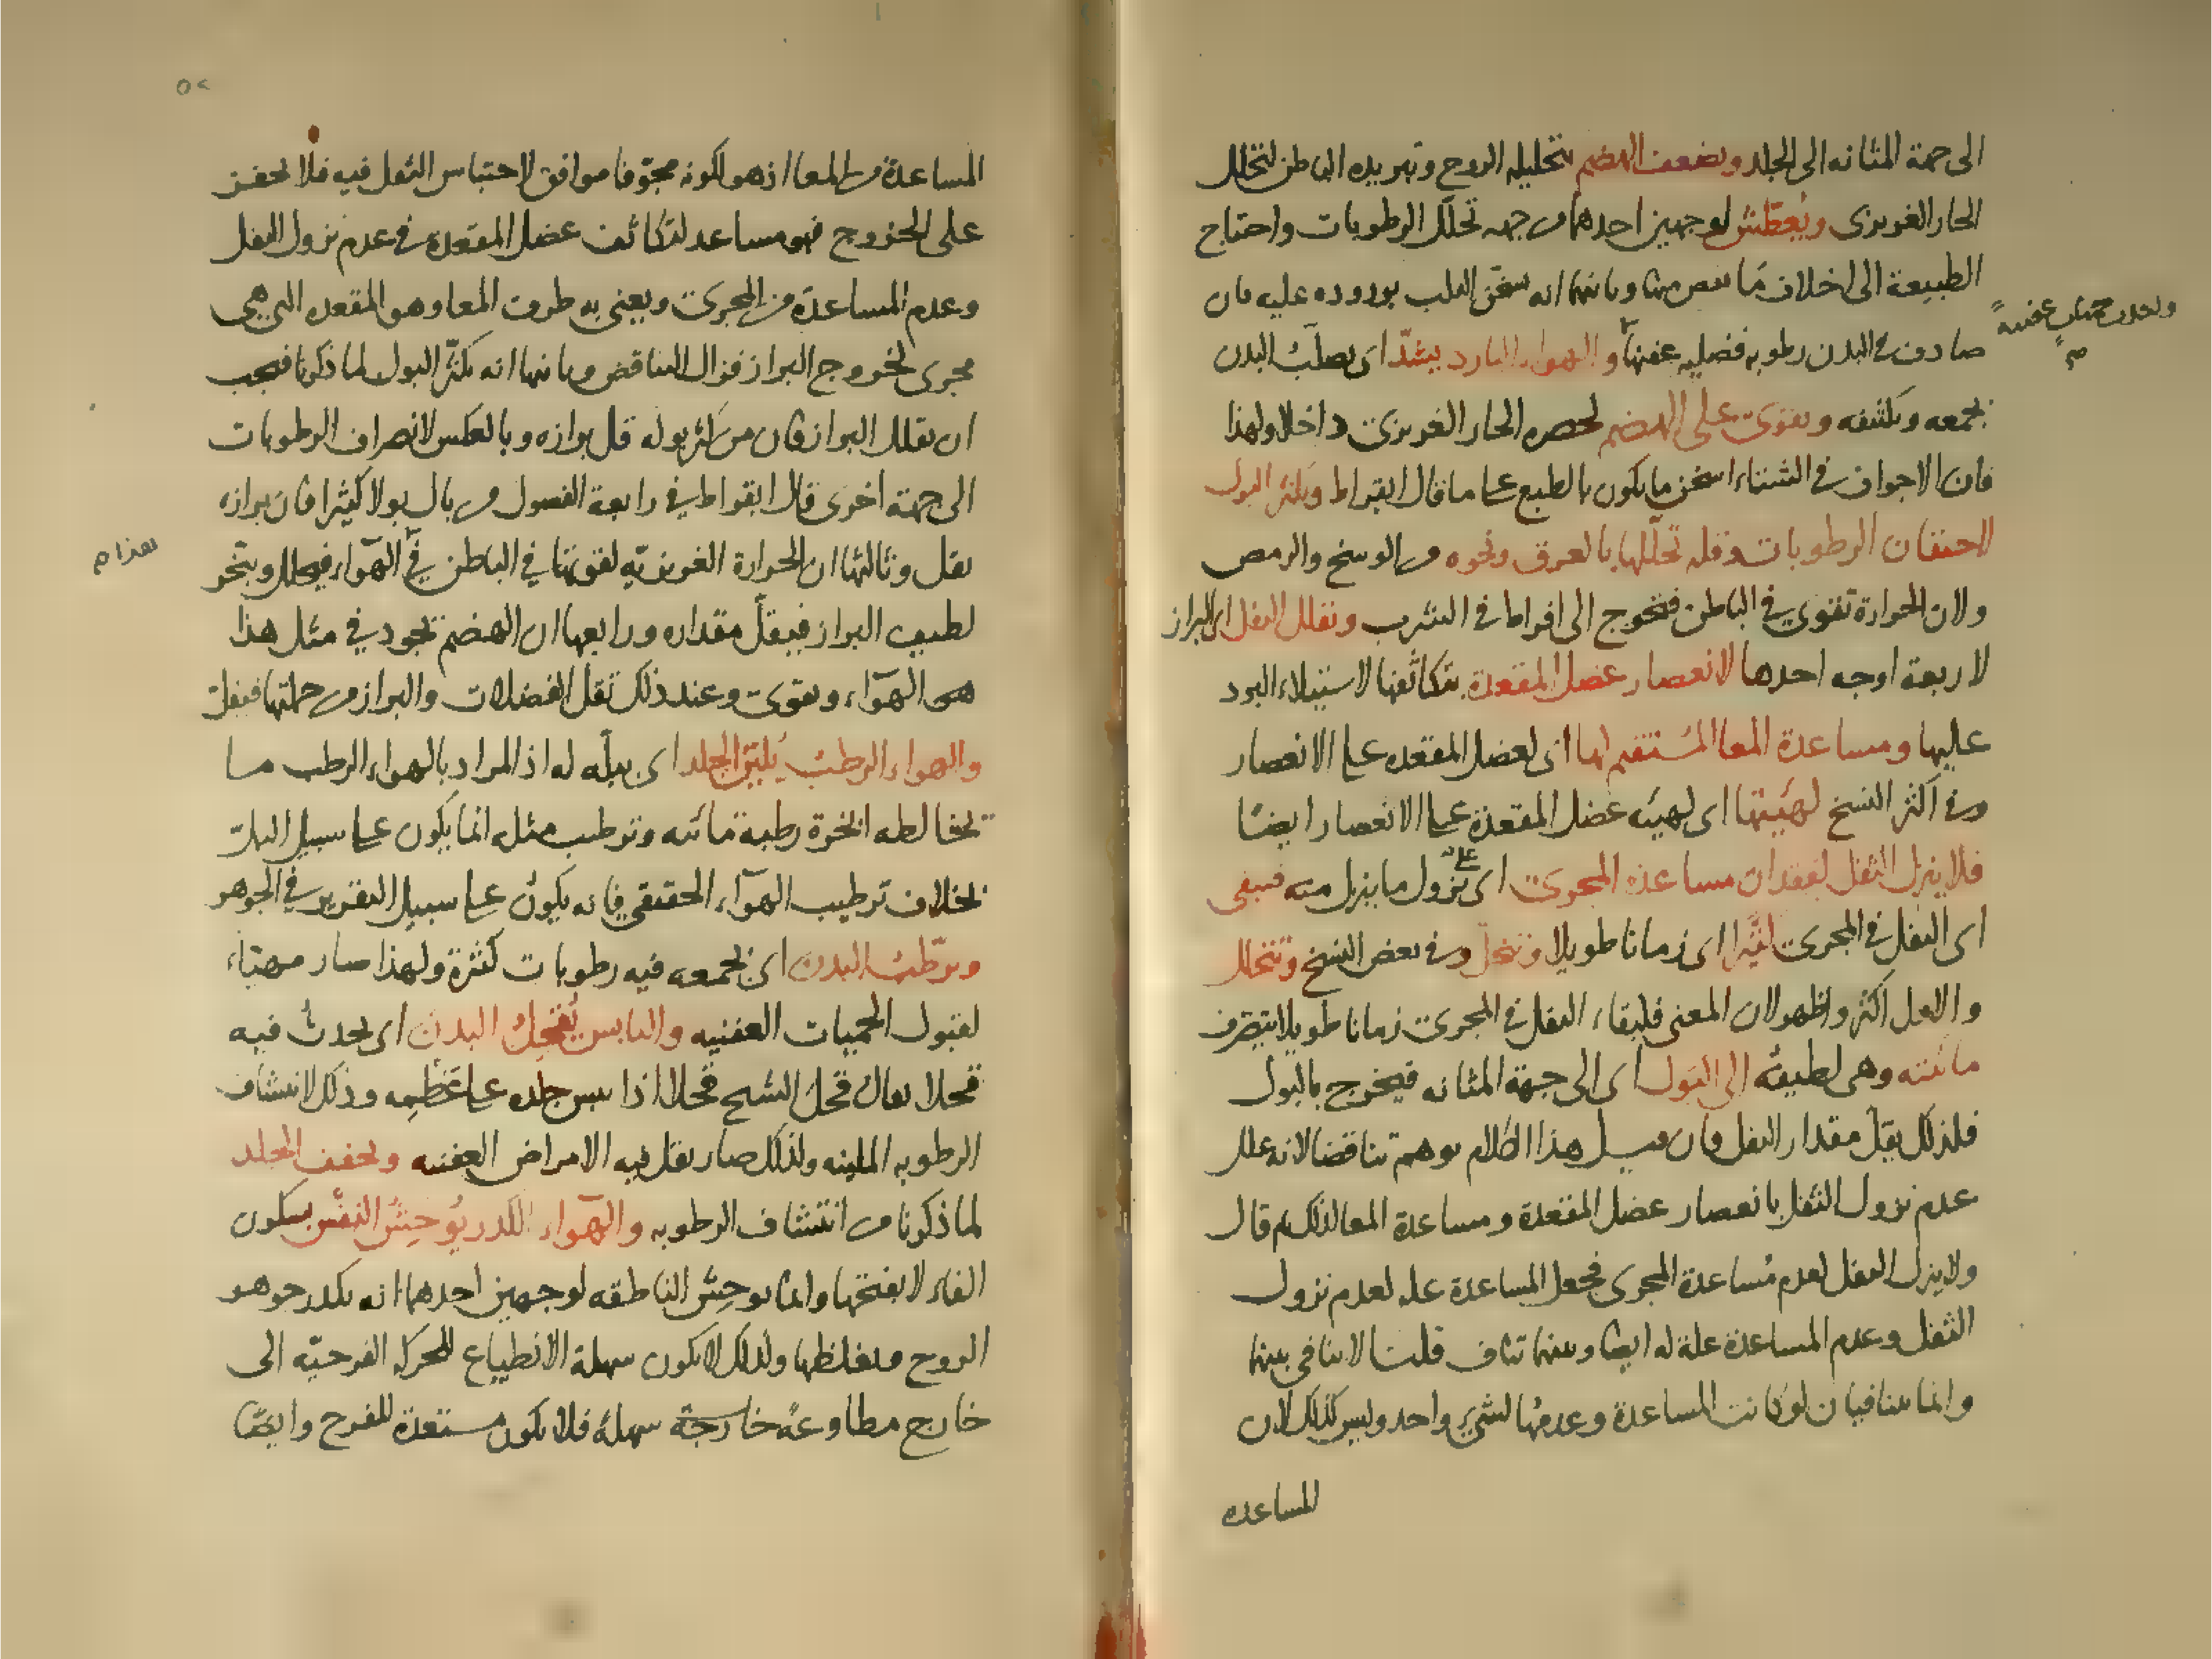 الى جهة المثانه الى الجلد ويضعف الهضم بتحليله الروح وتبريده الباطن لتحلل
الحار الغريزى ويُعطّش لوجهين احدهما من جهه تحلّل الرطوبات واحتاج
الطبيعة الى اخلاف مَا نقص منها وثانيها انه سخّن القلب بوروده عليه فان
صادف فى البدن رطوبه فضليه عفنها والهواء البارد يشدّ اى يصلّب البدن
ويحدث حميات عفنيةً صح
بجمعه وتكثفه ويقوى على الهضم لحصره الحار الغريزى داخلا ولهذا
فان الاجواف فى الشتاء اسخن ما يكون بالطبع على ما قال ابقراط ويكثر البول
لاحتقان الرطوبات وقله تحلّلها بالعرق ونحوه من الوسخ والرمص
ولان الحرارة تقوى فى الباطن فتحوج الى افراط فى الشرب ويقلل الثفل اى البراز
لاربعة اوجه احدها لانعصار عضل المقعدة بتكاثفها لاستيلاء البرد
عليها ومساعدة المعا المُستقيم لها اى لعضل المقعده على الانعصار
وفى اكثر النسخ لهيئتها اى لهيئه عضل المقعدة على الانعصار ايضًا
فلا ينزل الثفل لفقدان مساعدة المجرى اى على نزول ما ينزل منه فيبقى
اى الثفل فى المجرى لبثًا اى زمانا طويلا وتنحل وفى بعض النسخ وتتحلل
والاول اكثر واظهر لان المعنى فلبقاء الثفل فى المجرى زمانا طويلا يتصرف
مائيته وهى لطيفه الى البول اى الى جهة المثانه فيخرج بالبول
فلذلك يقلّ مقدار الثفل فان قيل هذا الكلام يوهم تناقضا لانه علل
عدم نزول الثفل بانعصار عضل المقعدة ومساعدة المعا لذلك ثم قال
ولا ينزل الثفل لعدم مُساعدة المجرى فجعل المساعدة علة لعدم نزول
الثفل وعدم المساعدة علة له ايضا وبينهما تناف قلت لا تنافى بينهما
وانما يتنافيان لو كانت المساعدة وعدمُها لشىء واحد وليس كذلك لان
المساعده
٥٢
المساعدة من المعا اذ هو لكونه مجوّفا موافق لاحتباس الثفل فيه فلا يحفز
على الخروج فهو مساعد لتكاثف عضل المقعدة فى عدم نزول الثفل
وعدم المساعدة من المجرى ويعنى به طرف المعا وهو المقعده التى هى
مجرى لخروج البراز فزال التناقض وثانيها انه يكثّر البول لما ذكرنا فيجب
ان يقلل البراز فان من كثر بوله قل برازه وبالعكس لانصراف الرطوبات
الى جهة اخرى قال ابقراط فى رابعة الفصول من بال بولا كثيرا فان برازه
يقل وثالثها ان الحرارة الغريزيّه لقوتها فى الباطن فى هذا صح الهوآء فيحلل ويبخر
لطيف البراز فيقلّ مقداره ورابعها ان الهضم يجود فى مثل هذا
الهوآء ويقوى وعند ذلك تقل الفضلات والبراز من جملتها فيقل
والهواء الرطبُ يُليّن الجلد اى يبلّه له اذ المراد بالهواء الرطب ما
يخالطه ابخرة رطبة مائيه وترطيب مثل انما يكون على سبيل البلّ
بخلاف ترطيب الهوآء الحقيقى فانه يكون على سبيل التقرير فى الجوهر
ويرّطب البدن اى بجمعه فيه رطوبات كثرة ولهذا صار مهيّاء
لقبول الحميات العفنيه واليابس يُقحِلُ البدن اى يحدث فيه
قحلا يقال قحل الشيخ قحلا اذا يبس جلده على عَظْمه وذلك لانتشاف
الرطوبه المليّنه ولذلك صار يقل فيه الامراض العفنيه ويجفف الجلد
لما ذكرنا من انتشاف الرطوبه والهوآء الكدر يُوحِشُ النفْس بسكون
الفاء لا بفتحها وانما يوحِش الناطقه لوجهين احدهما انه يكدر جوهر
الروح ويغلظها ولذلك لا يكون سهلة الانطياع للحركه الفرحيّه الى
خارج مطاوعهً خارجة سهلة فلا يكون مستعدة للفرح وايضًا